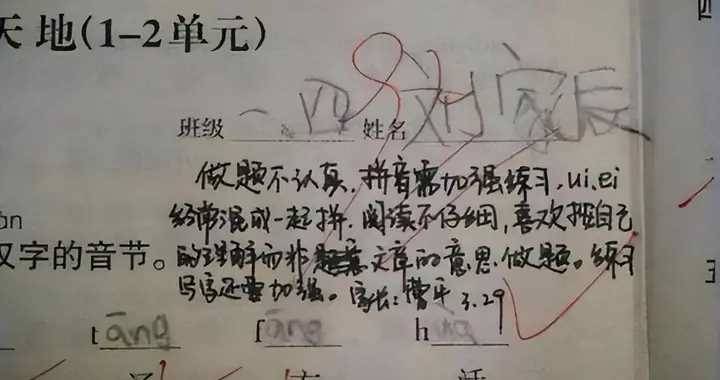 天地(1-2单元)
四
班级 一、四 姓名 刘家辰
做题不认真，拼音需加强练习，ui、ei
经常混成一起拼，阅读不仔细，喜欢按自己
的理解而非文章的意思做题。练习
写字还要加强。家长：曹平 3.29
汉字的音节。
tāng fāng háng